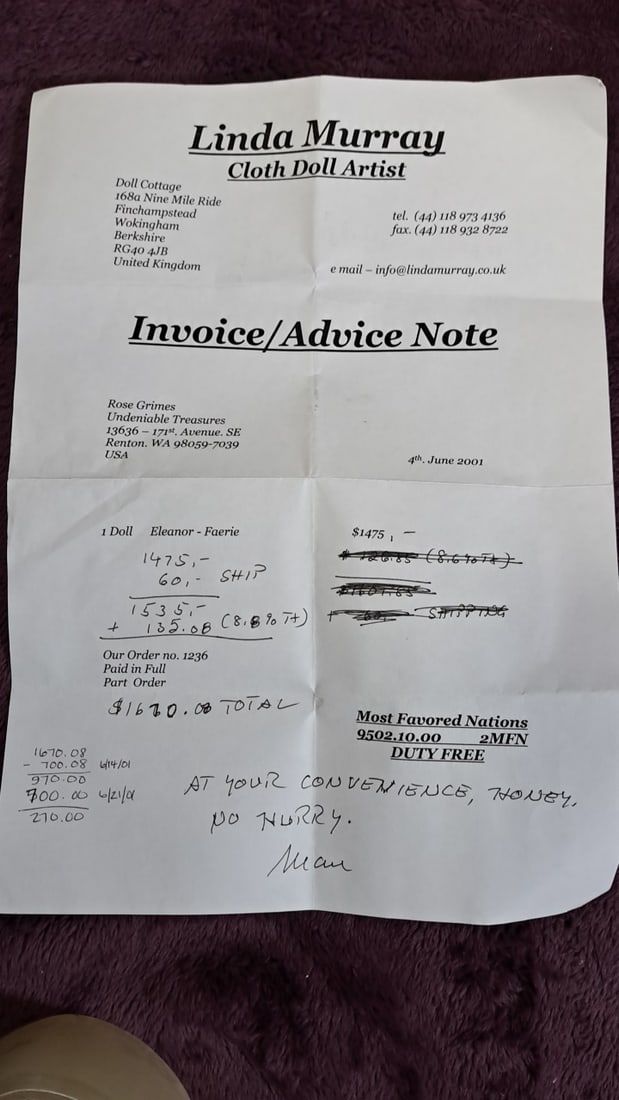 Linda Murray
Cloth Doll Artist
Doll Cottage
168a Nine Mile Ride
Finchampstead
Wokingham
Berkshire
RG40 4JB
United Kingdom
tel. (44) 118 973 4136
fax. (44) 118 932 8722
e mail – info@lindamurray.co.uk
Invoice/Advice Note
Rose Grimes
Undeniable Treasures
13636 – 171st. Avenue. SE
Renton. WA 98059-7039
USA
4th. June 2001
1 Doll Eleanor - Faerie $1475,–
1475,–
60,– SHIP
1535,–
+ 135.08 (8.8% TX)
(8.6% TX)
+ SHIPPING
Our Order no. 1236
Paid in Full
Part Order
$1670.08 TOTAL
Most Favored Nations
9502.10.00 2MFN
DUTY FREE
1670.08
- 700.08 6/14/01
970.00
700.00 6/21/01
270.00
AT YOUR CONVENIENCE, HONEY.
NO HURRY.